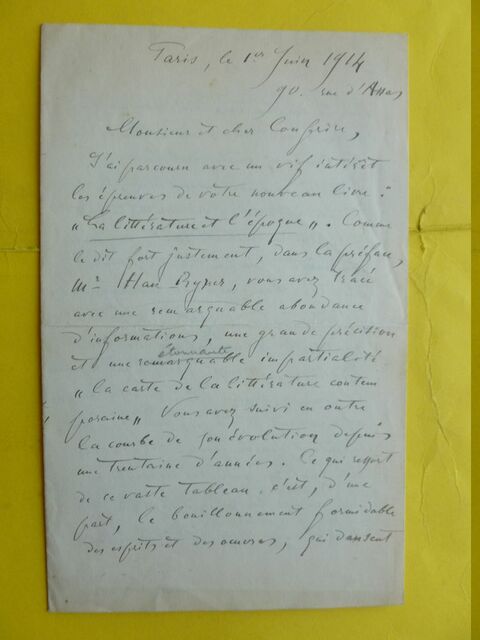 Paris, le 1er Juin 1914
90. rue d'Assas
Monsieur et cher Confrère,
J'ai parcouru avec un vif intérêt
les épreuves de votre nouveau livre :
"La littérature et l'époque". Comme
le dit fort justement, dans la préface,
Mr Han Ryner, vous avez tracé
avec une remarquable abondance
d'informations, une grande précision
et une remarquable étonnante impartialité
"la carte de la littérature contem
poraine" Vous avez suivi en outre
la courbe de son évolution depuis
une trentaine d'années. Ce qui ressort
de ce vaste tableau, c'est, d'une
part, le bouillonnement formidable
des esprits et des oeuvres, qui dansent